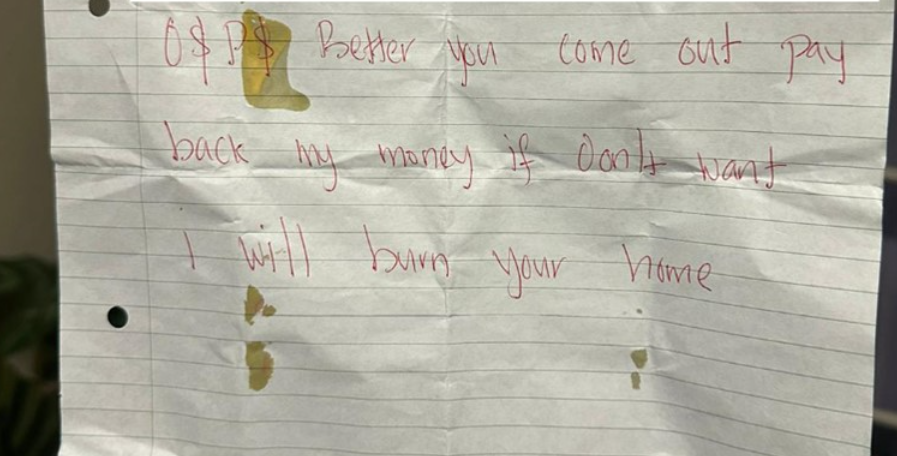 O$P$ Better you come out pay
back my money if Don't want
I will burn your home